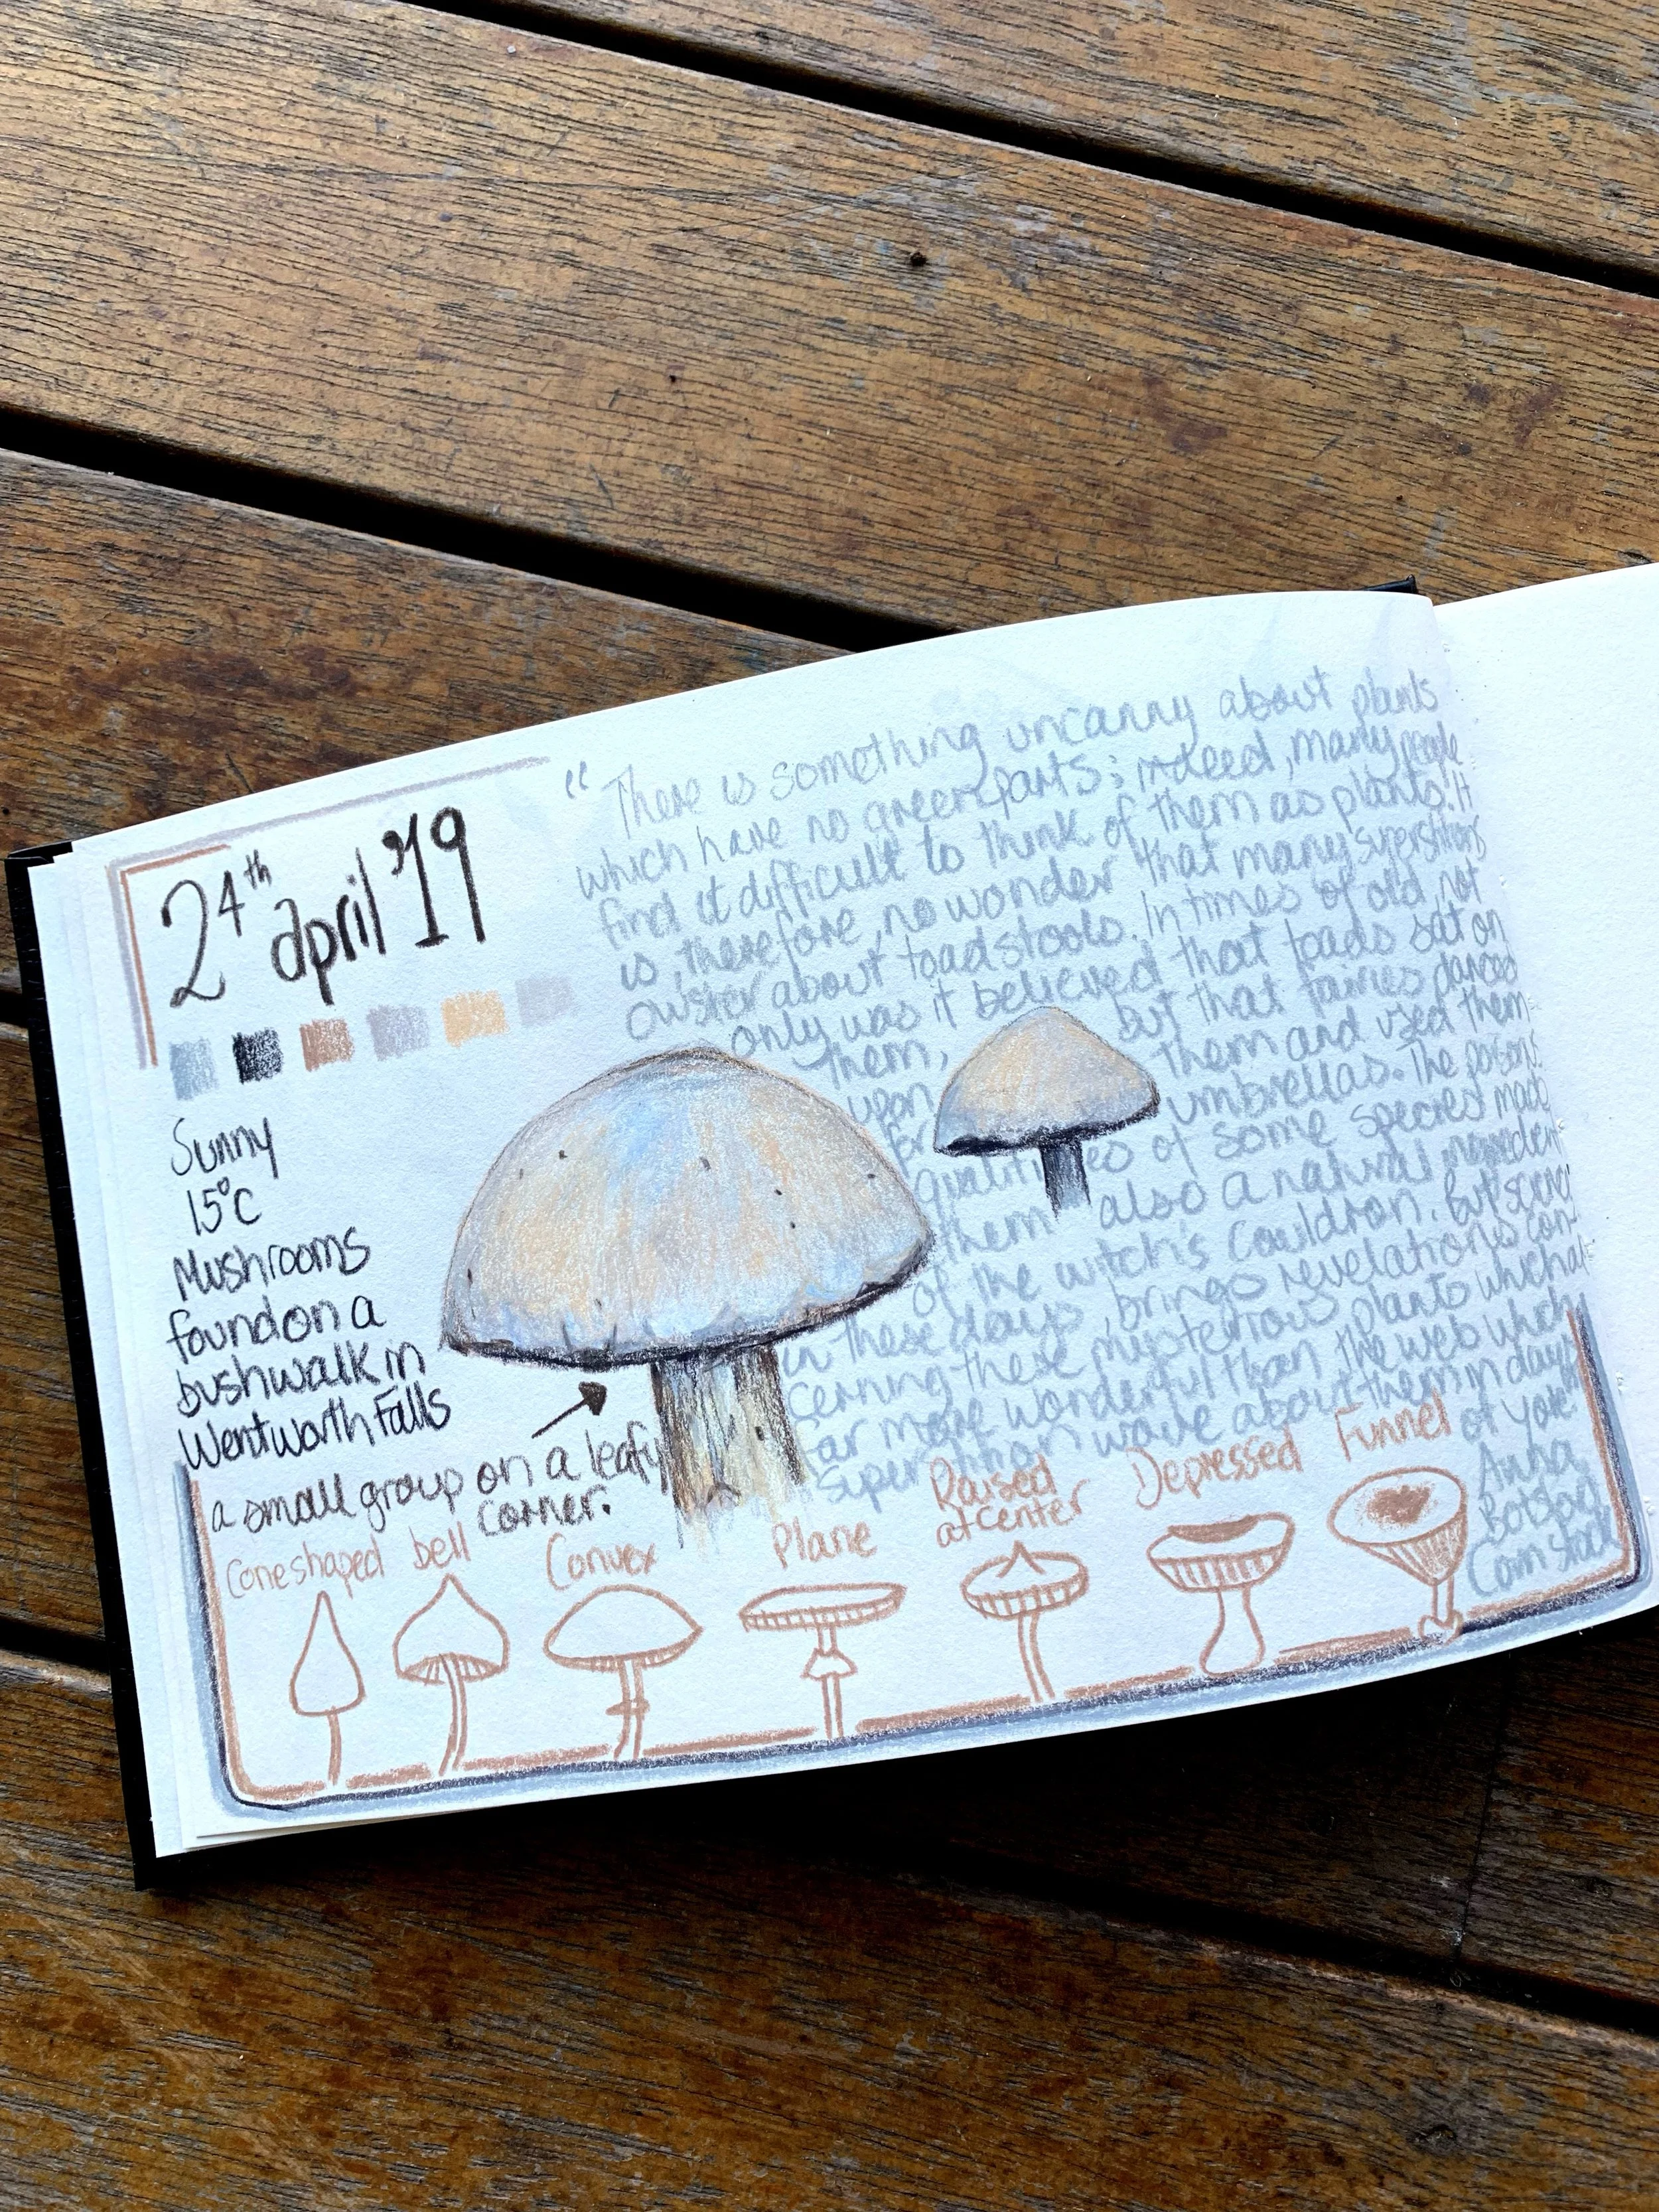 24th april '19
Sunny
15°C
Mushrooms
found on a
bushwalk in
Wentworth Falls
a small group on a leafy
corner.
"There is something uncanny about plants
which have no green parts; indeed, many people
find it difficult to think of them as plants. It
is, therefore, no wonder that many superstitions
about toadstools. In times of old, not
only was it believed that toads sat on
them, but that fairies danced
upon them and used them
for umbrellas. The poisons
qualities of some species made
them also a natural ingredient
of the witch's cauldron. But science
in these days, brings revelations con-
cerning these mysterious plants which a
far more wonderful than the web which
superstition wove about them in days
of yore."
Anna
Botsford
Comstock
Cone shaped
bell
Convex
Plane
Raised
at center
Depressed
Funnel